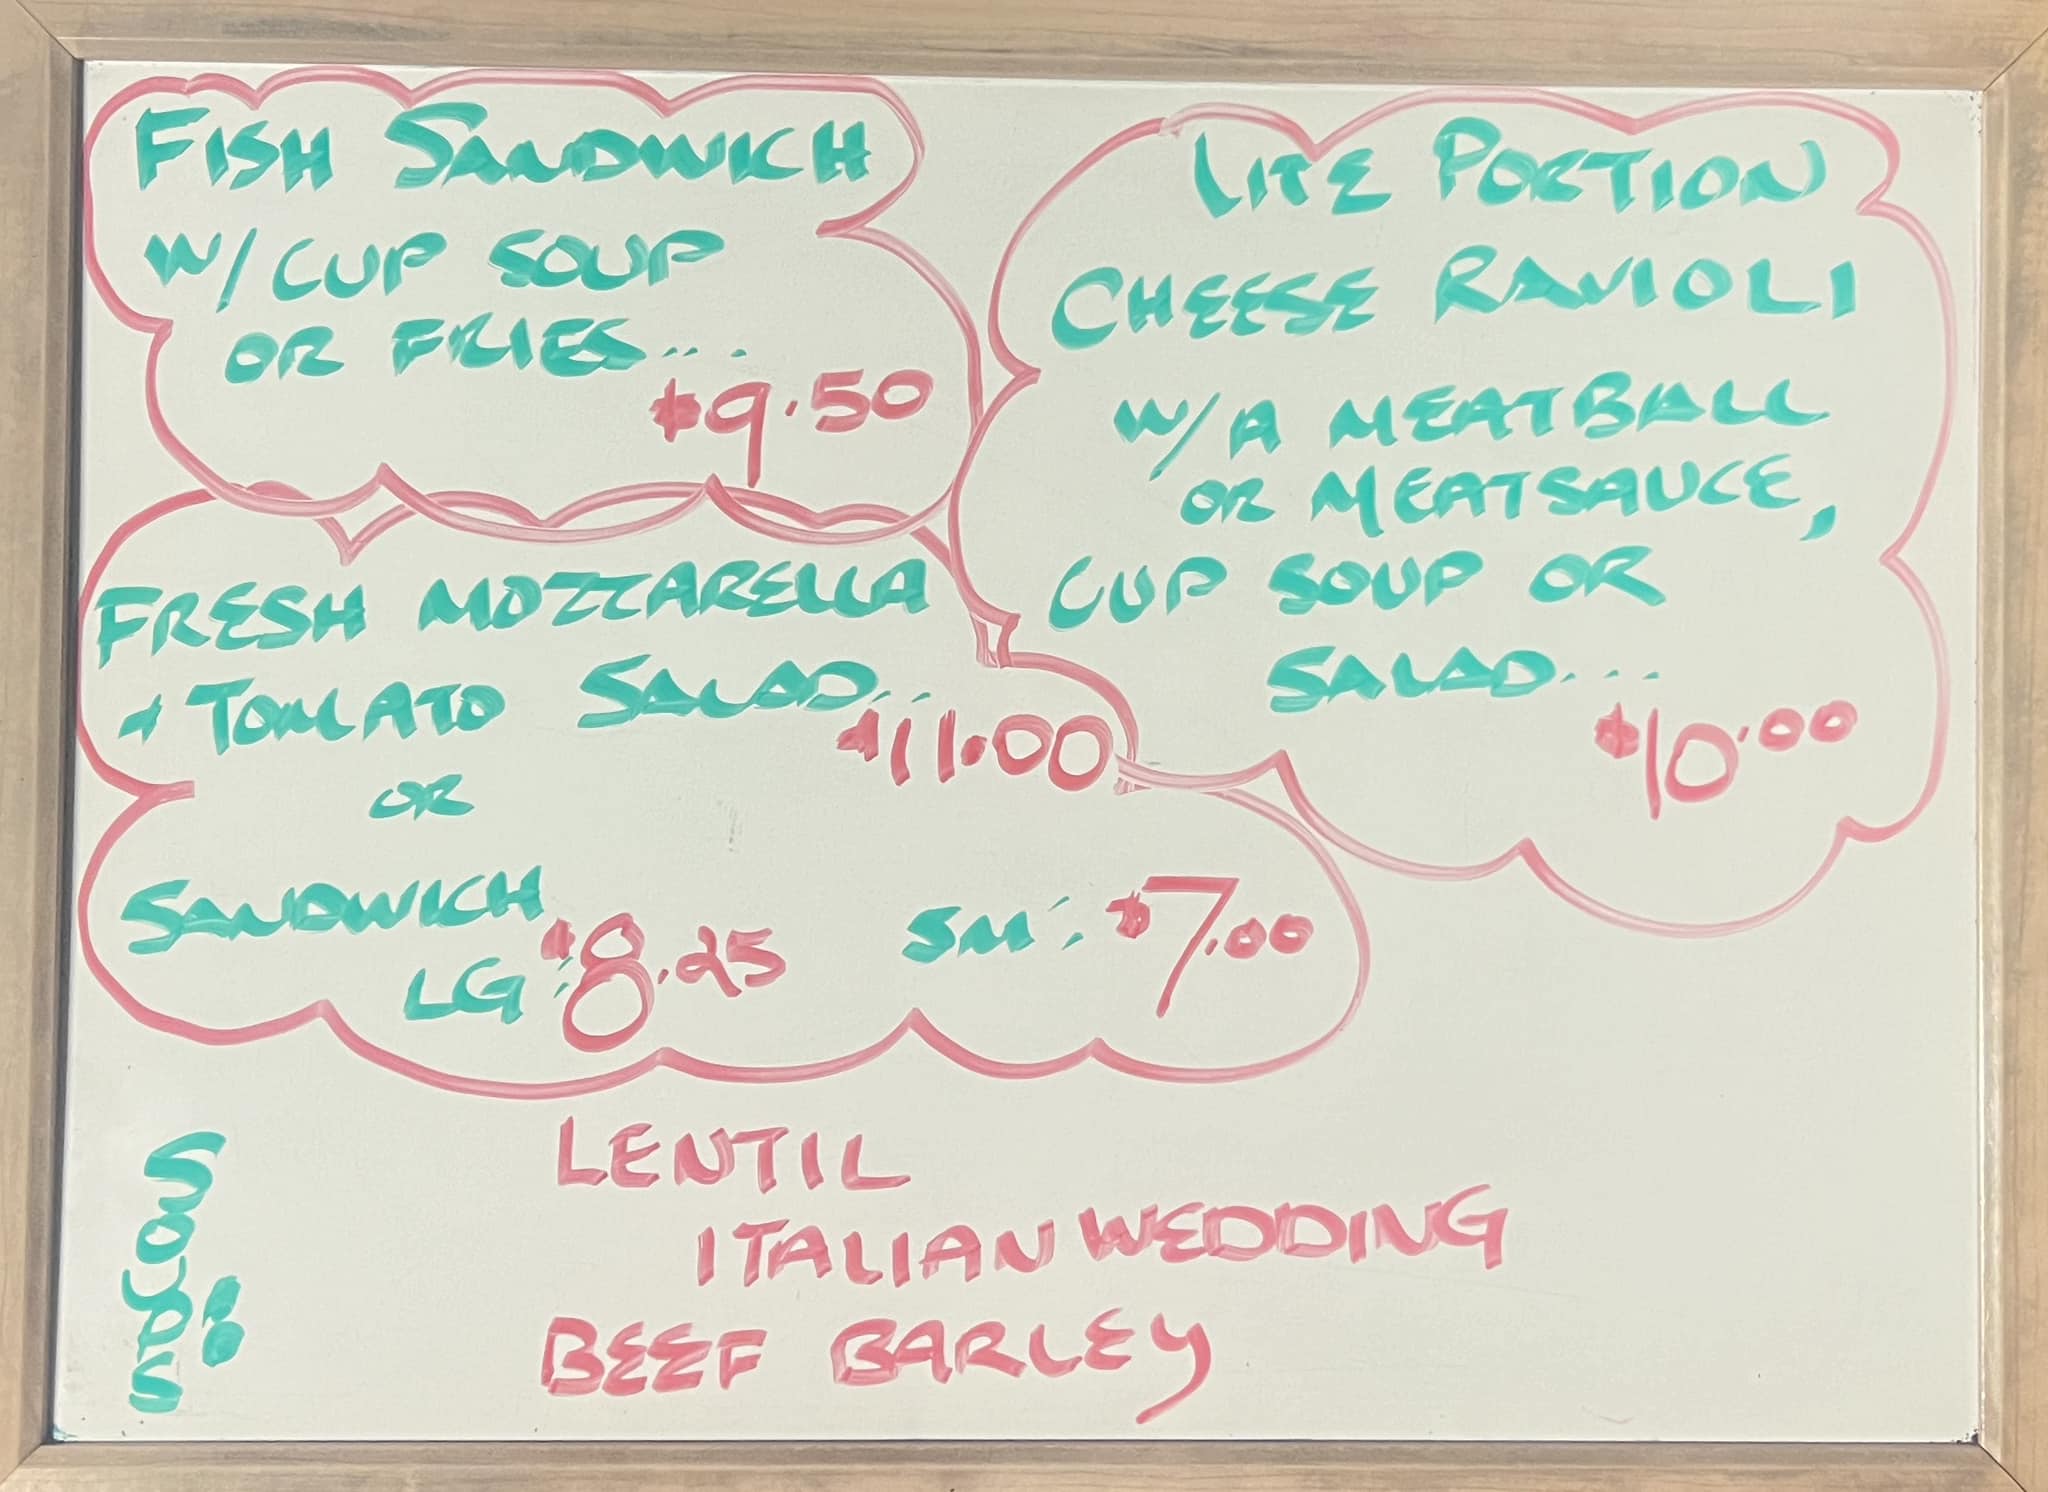 FISH SANDWICH
W/ CUP SOUP
OR FRIES...
$9.50
LITE PORTION
CHEESE RAVIOLI
W/A MEATBALL
OR MEATSAUCE,
CUP SOUP OR
SALAD...
$10.00
FRESH MOZZARELLA
+ TOMATO SALAD...
$11.00
OR
SANDWICH
LG: $8.25 SM: $7.00
SOUPS:
LENTIL
ITALIAN WEDDING
BEEF BARLEY